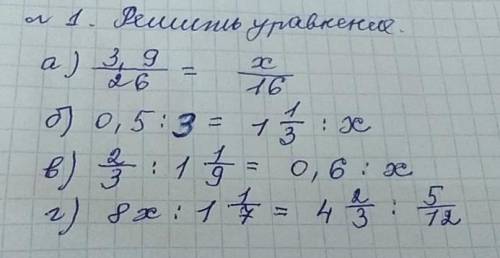 № 1. Решить уравнение.
а) 3,9/26 = x/16
б) 0,5 : 3 = 1 1/3 : x
в) 2/3 : 1 1/9 = 0,6 : x
г) 8x : 1 1/7 = 4 2/3 : 5/12